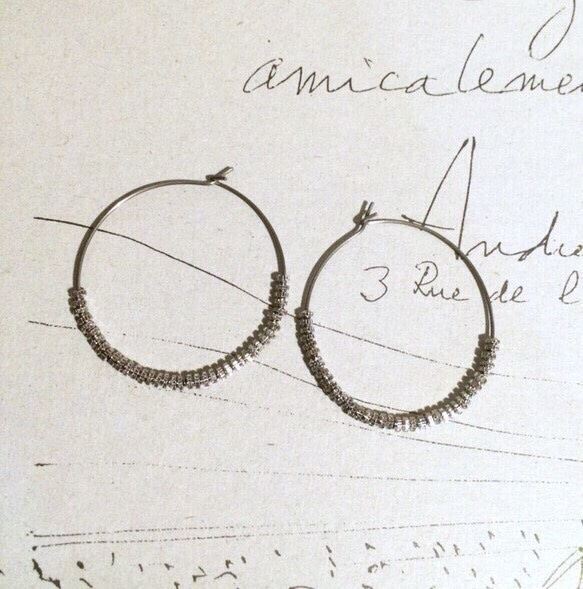 amicalemen
Andre
3 Rue de l